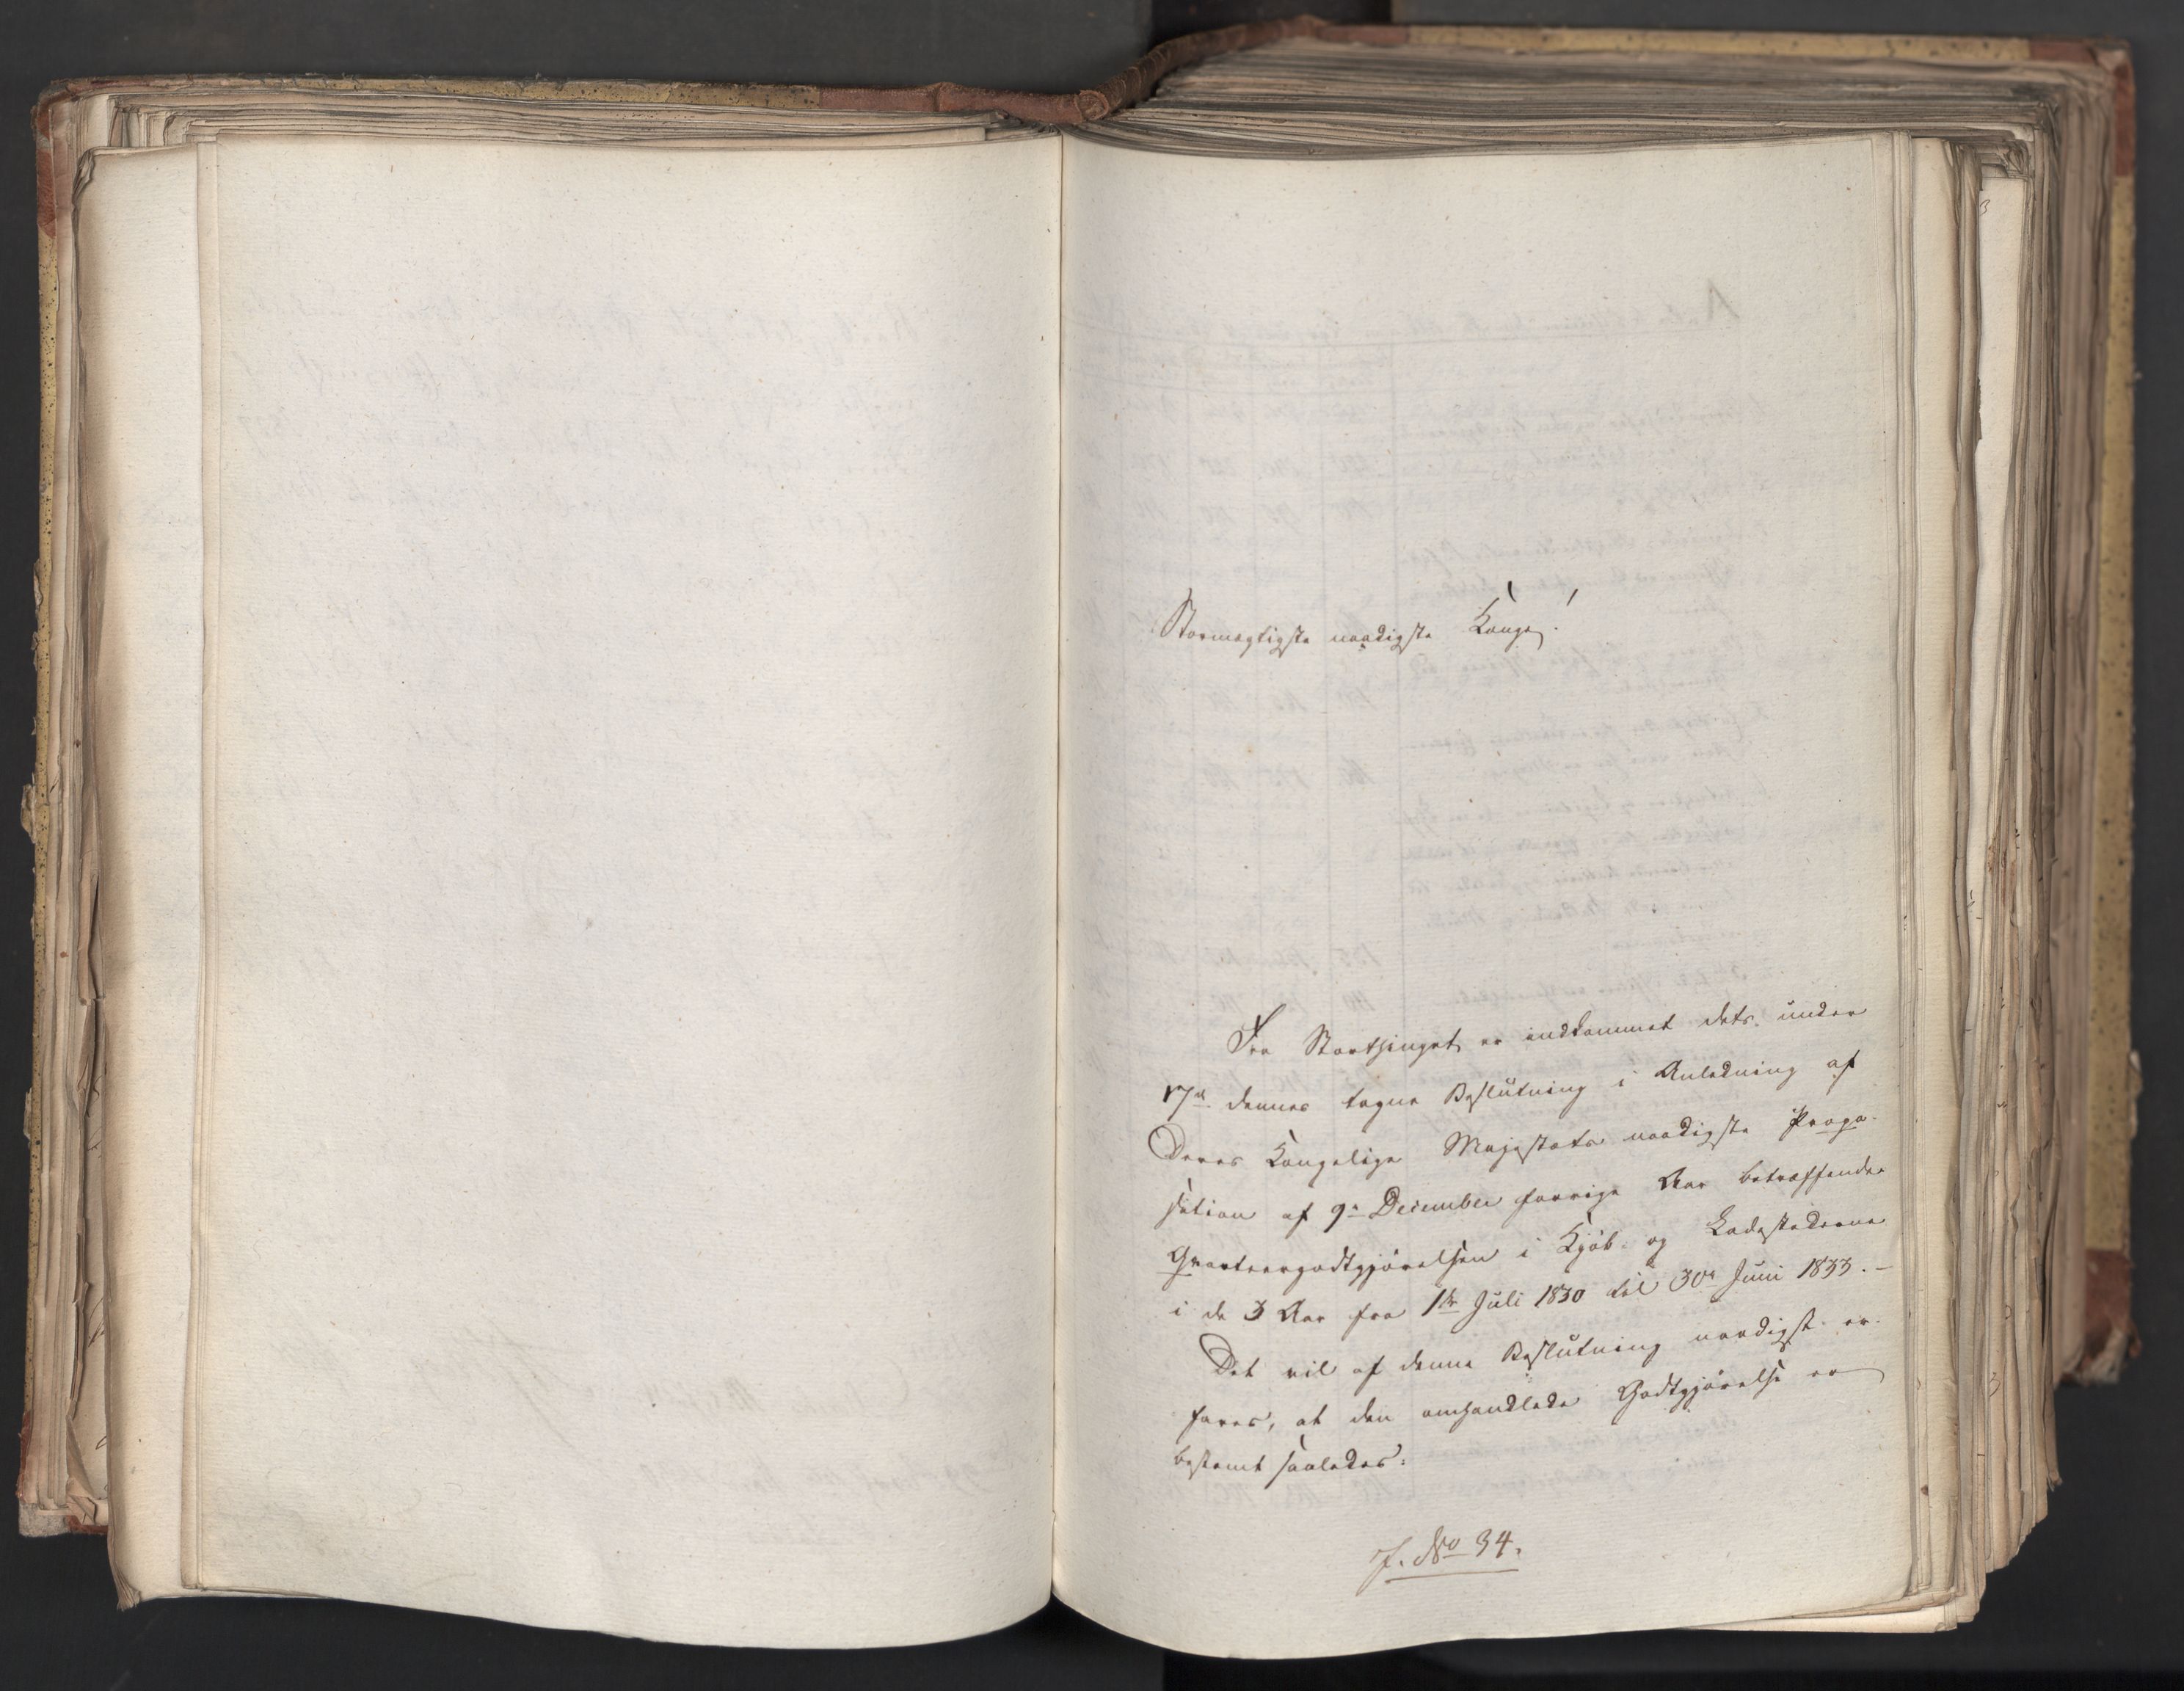 Stormægtigste naadigste Konge!
Fra Storthinget er indkommet dets under
17de dennes tagne Beslutning i Anledning af
Deres Kongelige Majestæts naadigste Propo-
sition af 9de December forrige Aar betræffende
Qvarteergodtgjörelsen i Kjöb- og Ladestæderne
i de 3 Aar fra 1ste Juli 1830 til 30te Juni 1833.-
Det vil af denne Beslutning naadigst er-
fares, at den omhandlede Godtgjörelse er
bestemt saaledes:
J. No 34.